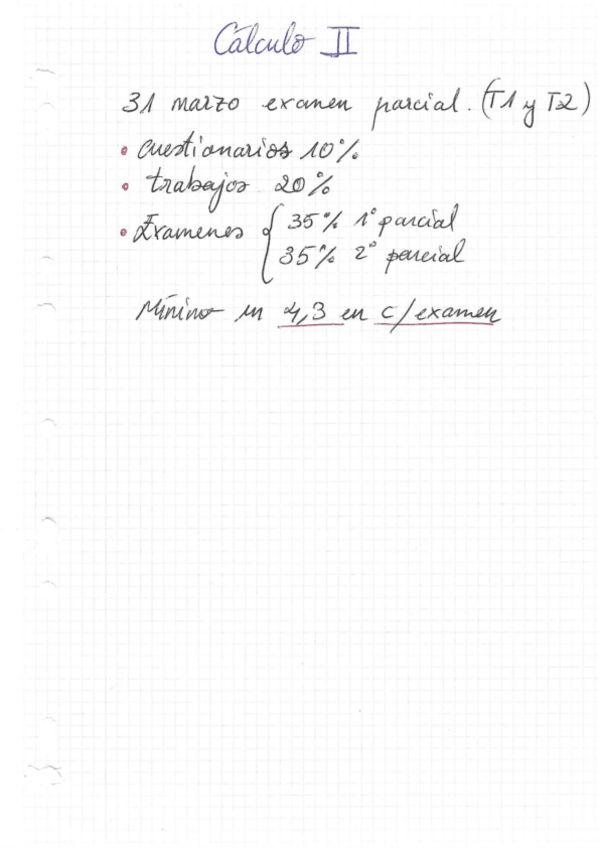 Cálculo II
31 marzo examen parcial. (T1 y T2)
• cuestionarios 10%
• trabajos 20%
• Examenes { 35% 1º parcial
35% 2º parcial
Mínimo un 4,3 en c/examen